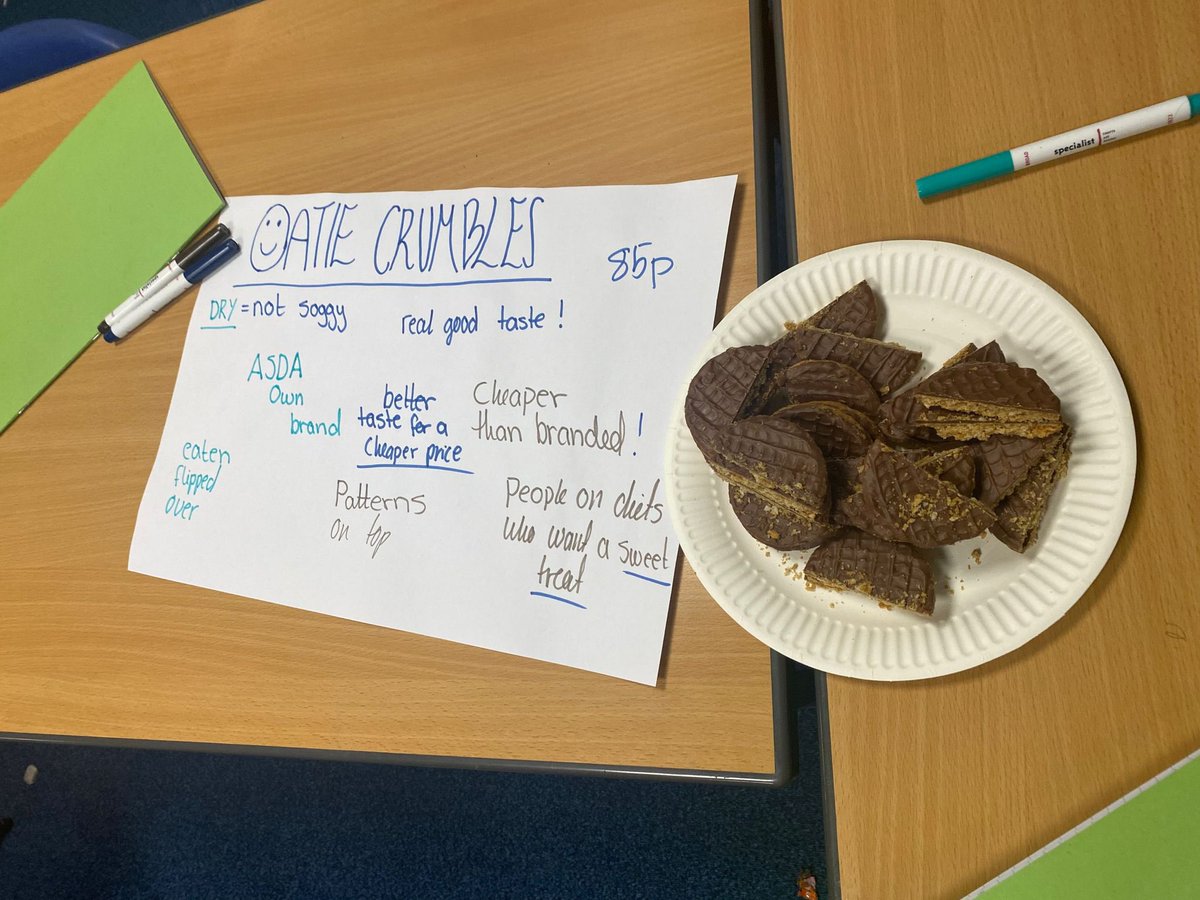 OATIE CRUMBLES
85p
DRY = not soggy
real good taste!
ASDA
Own
brand
better
taste for a
Cheaper price
Cheaper
than branded!
eaten
flipped
over
Patterns
on top
People on diets
who want a sweet
treat
specialist